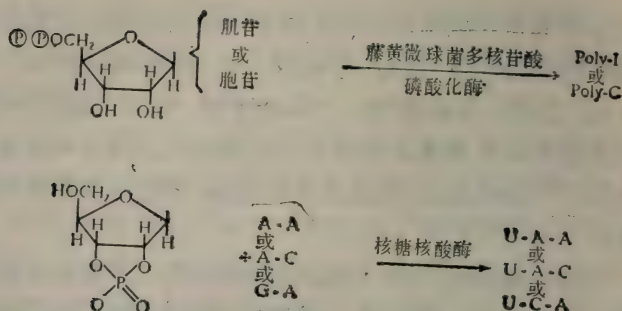 ⓅⓅOCH₂ O
肌苷
或
胞苷
H H H H
OH OH
藤黄微球菌多核苷酸
磷酸化酶
Poly-I
或
Poly-C
HOCH₂ O
H H H H
O O
P
O O
+
A-A
或
A-C
或
G-A
核糖核酸酶
U-A-A
或
U-A-C
或
U-C-A